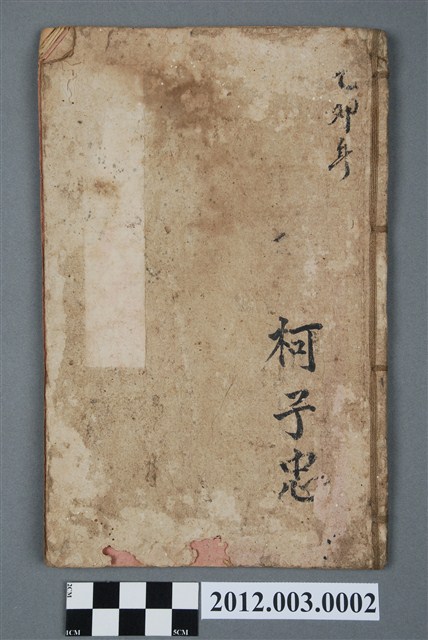 乙卯年
柯子忠
2CM
1CM
5CM
2012.003.0002